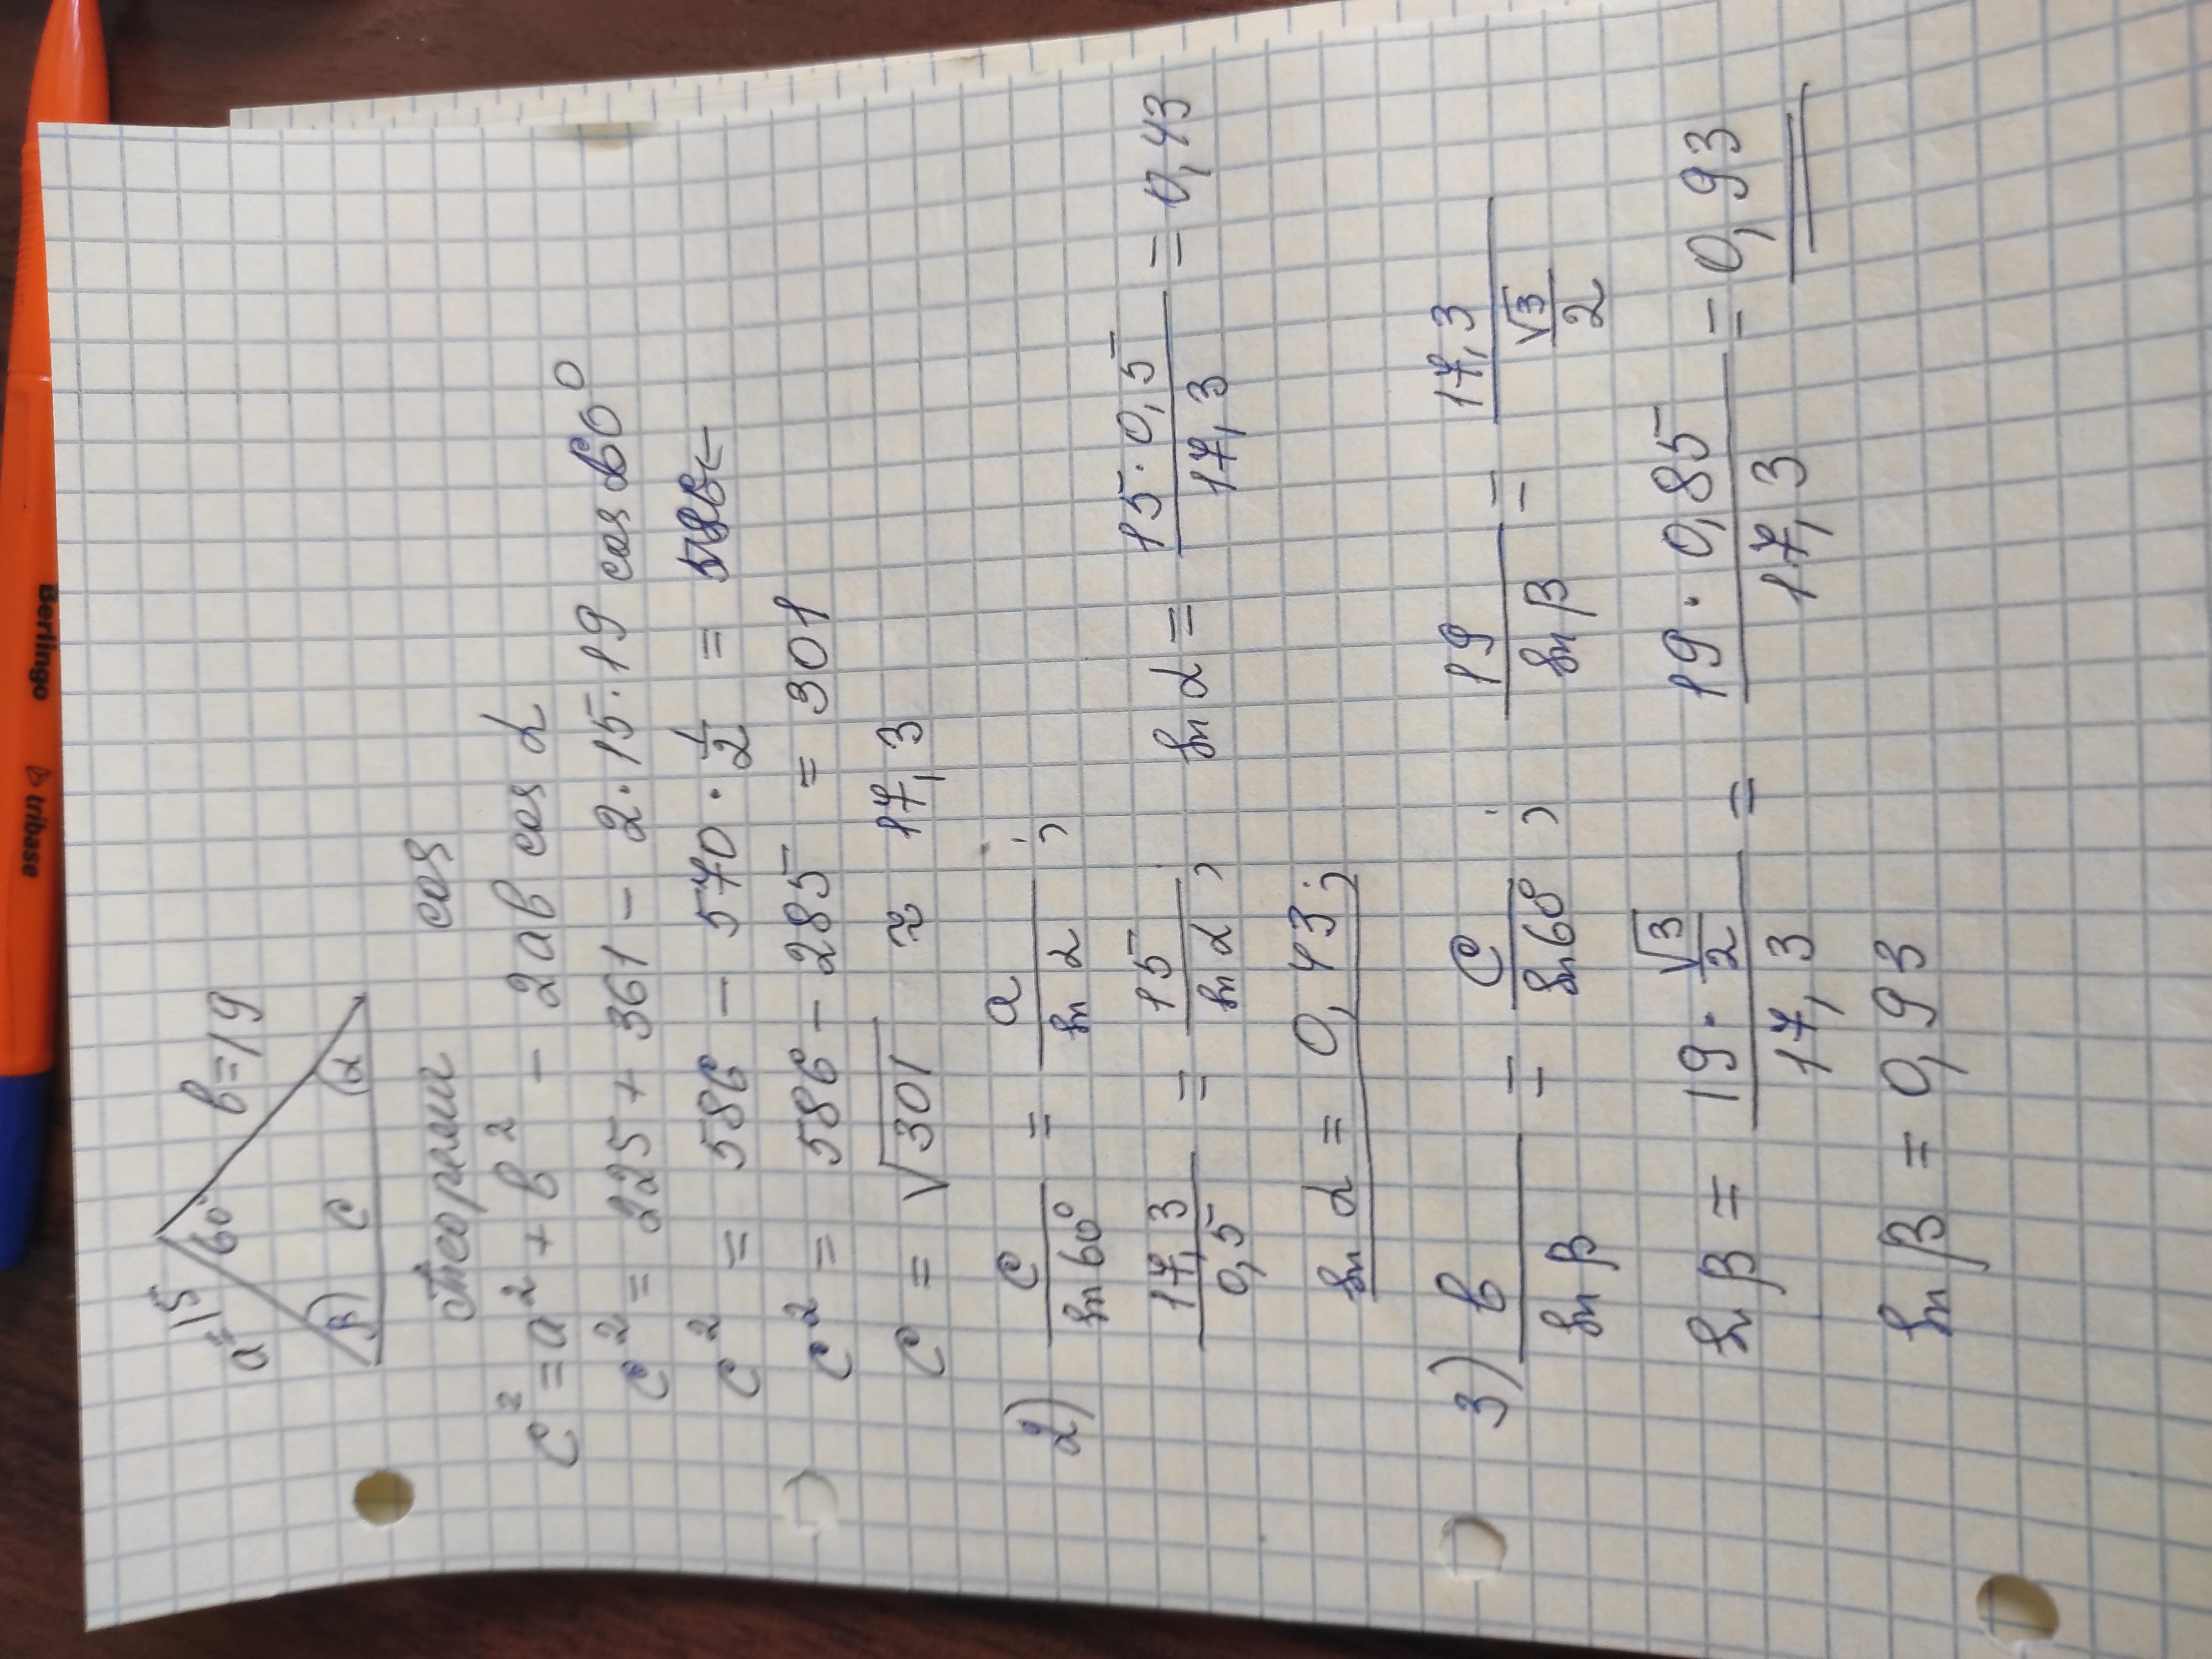 a=15
b=19
60°
β
c
α
Теорема cos
c² = a² + b² - 2ab cos α
c² = 225 + 361 - 2·15·19 cos 60°
c² = 586 - 570 · 1/2 =
c² = 586 - 285 = 301
c = √301 ≈ 17,3
2) c/sin 60° = a/sin α ;
17,3/0,5 = 15/sin α ; sin α = 15·0,5/17,3 = 0,43
sin α = 0,43;
3) b/sin β = c/sin 60 ; 19/sin β = 17,3/(√3/2)
sin β = 19·√3/2/17,3 = 19·0,85/17,3 = 0,93
sin β = 0,93
Berlingo tribase